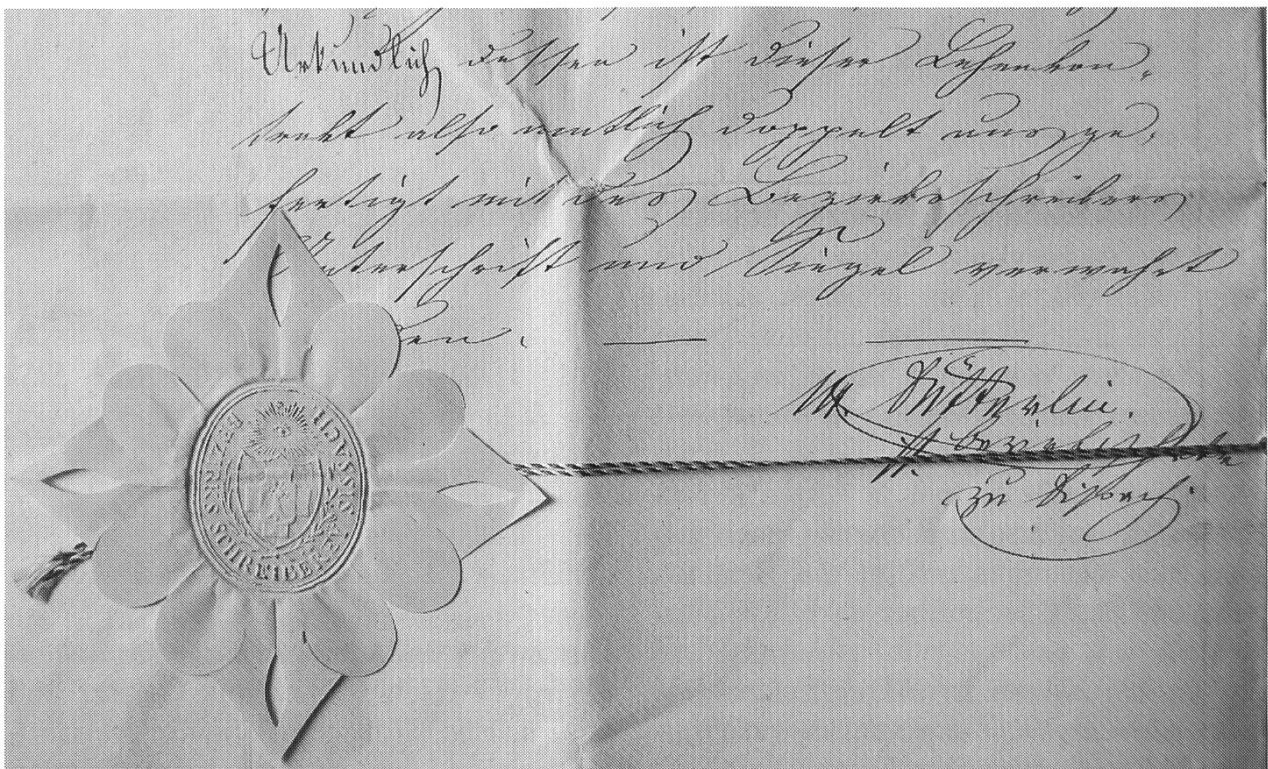 Urkundlich dessen ist dieser Lehenkon-
trakt also amtlich doppelt ausge-
fertigt mit des Bezirksschreibers
Unterschrift und Siegel verwahrt
en.
M. Sütterlin.
Bezirksschrbr
zu Sissach.
BEZIRKS SCHREIBEREI SISSACH